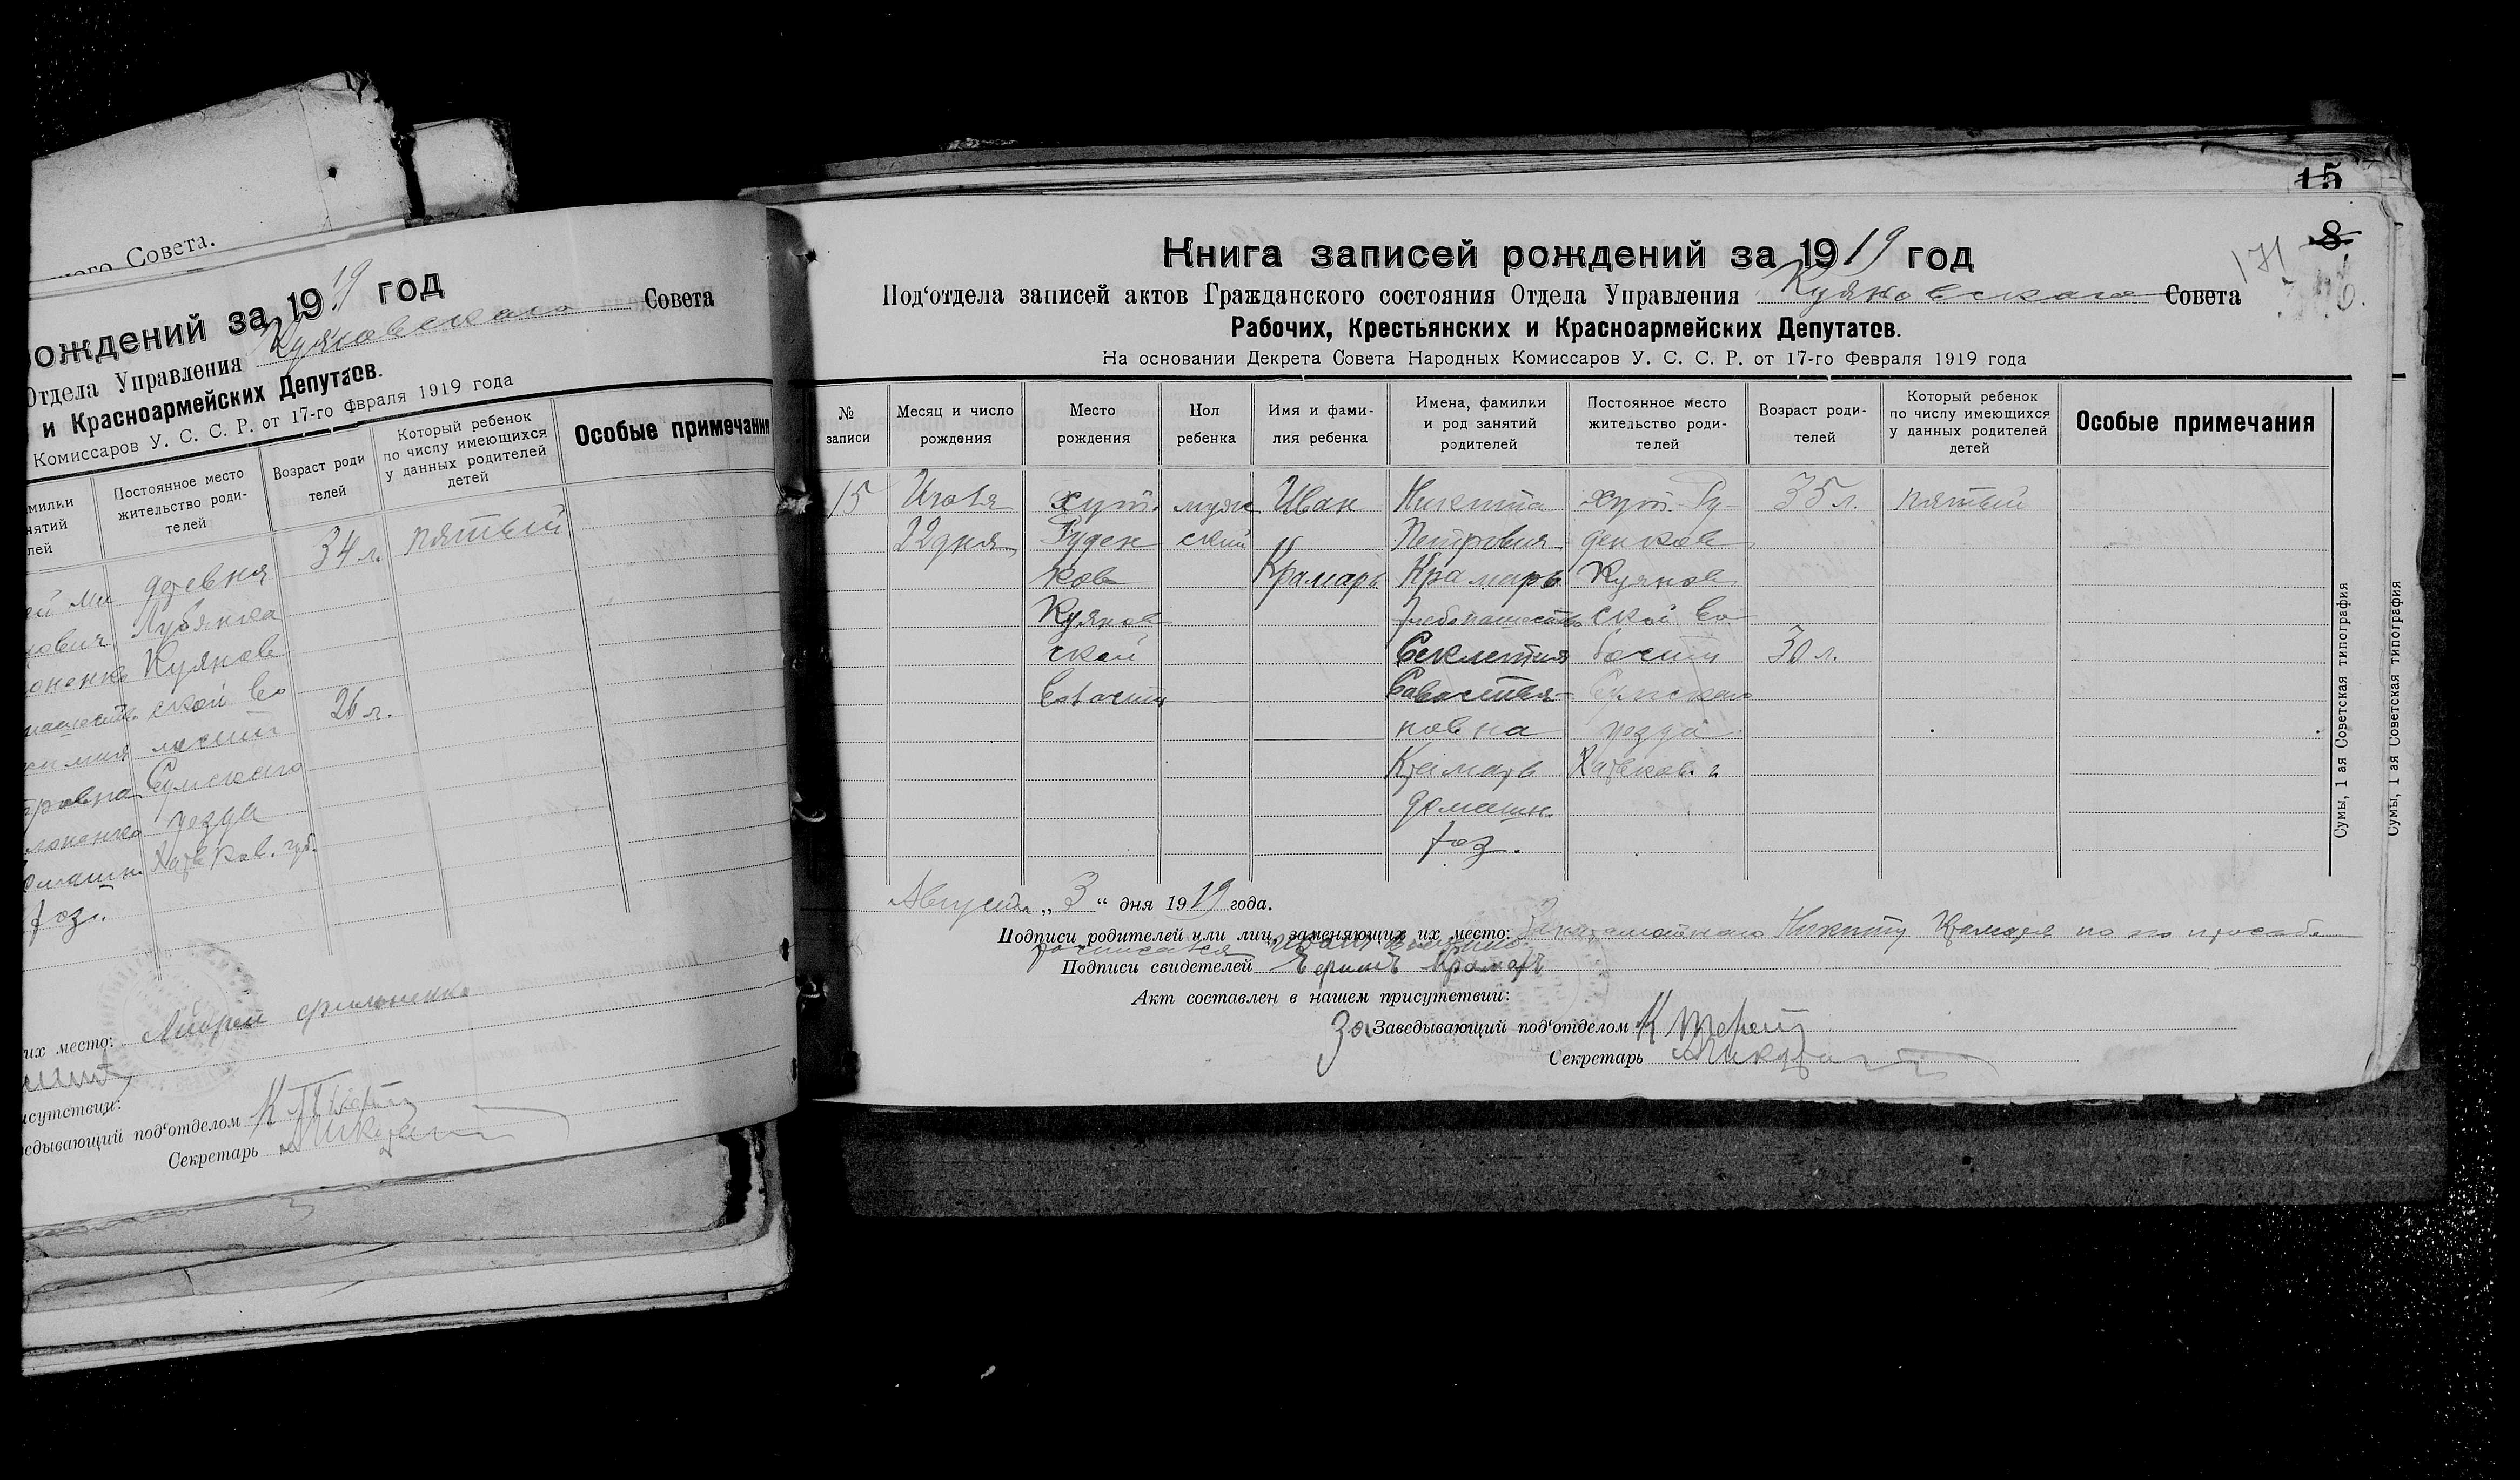 ного Совета.
ождений за 1919 год
Отдела Управления Куяновского Совета
и Красноармейских Депутатов.
Комиссаров У. С. С. Р. от 17-го фвраля 1919 года
милии
нятий
лей
Постоянное место
жительство роди-
телей
Возраст роди
телей
Который ребенок
по числу имеющихся
у данных родителей
детей
Особые примечания
деревня 34 л. пятый
Лубянка
Куянов
ской во
лости 26 л.
Сумского
уезда
Харьков. губ.
хоз.
их место: Андрей
исутствии:
сдывающий под'отделом
Секретарь
15
8
171
Книга записей рождений за 1919 год
Под'отдела записей актов Гражданского состояния Отдела Управления Куяновского Совета
Рабочих, Крестьянских и Красноармейских Депутатов.
На основании Декрета Совета Народных Комиссаров У. С. С. Р. от 17-го Февраля 1919 года
№
записи
Месяц и число
рождения
Место
рождения
Пол
ребенка
Имя и фами-
лия ребенка
Имена, фамилии
и род занятий
родителей
Постоянное место
жительство роди-
телей
Возраст роди-
телей
Который ребенок
по числу имеющихся
у данных родителей
детей
Особые примечания
15 Июля хут. муж Иван Никита хут. Гу- 35 л. пятый
22 дня Гуден ский Петрович денков
ков Крамарь Крамарь Куянов
Куянов хлебопашество ской во
ской Секлетия лости 30 л.
волости Савастья- Сумского
новна уезда
Крамарь Харьков. г.
домашн.
хоз.
Августа „ 3 “ дня 1919 года.
Подписи родителей или лиц, заменяющих их место: Никиту Крамаря по
росписался Иван
Подписи свидетелей Крамарь
Акт составлен в нашем присутствии:
За Завсдывающий под'отделом
Секретарь
Сумы, 1 ая Советская типография
Сумы, 1 ая Советская типография